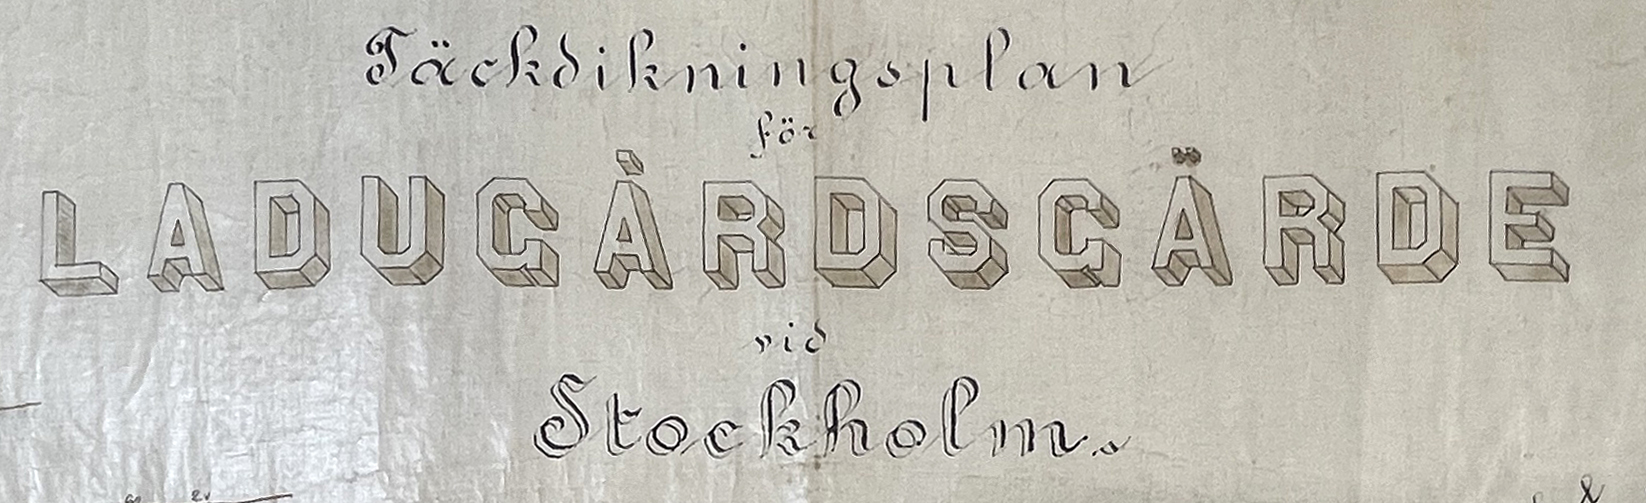 Täckdikningsplan
för
LADUGÅRDSGÄRDE
vid
Stockholm.